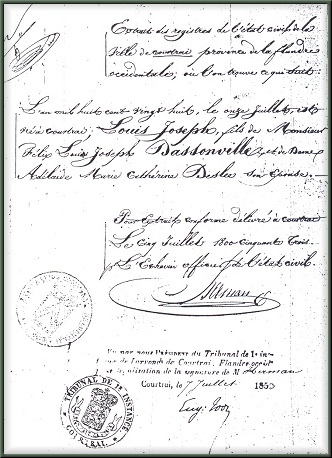 Extrait des registres de l'état civil de la
Ville de Courtrai province de la flandre
occidentale, où l'on trouve ce qui suit:
L'an mil huit cent vingt huit, le onze Juillet, est
né à Courtrai, Louis Joseph, fils de Monsieur
Félix Louis Joseph Bassonville, et de Dame
Adelaïde Marie Cathérine son Epouse.
Pour Extrait conforme délivré à Courtrai
Le Cinq Juillet 1800 Cinquante Trois.
L'Echevin officier de l'état civil.
Vu par nous Président du Tribunal de 1e in-
de l'arrond. de Courtrai, Flandre occid
légalisation de la signature de M
Courtrai, le 7 Juillet 1853
TRIBUNAL DE 1E INSTANCE
COURTRAI